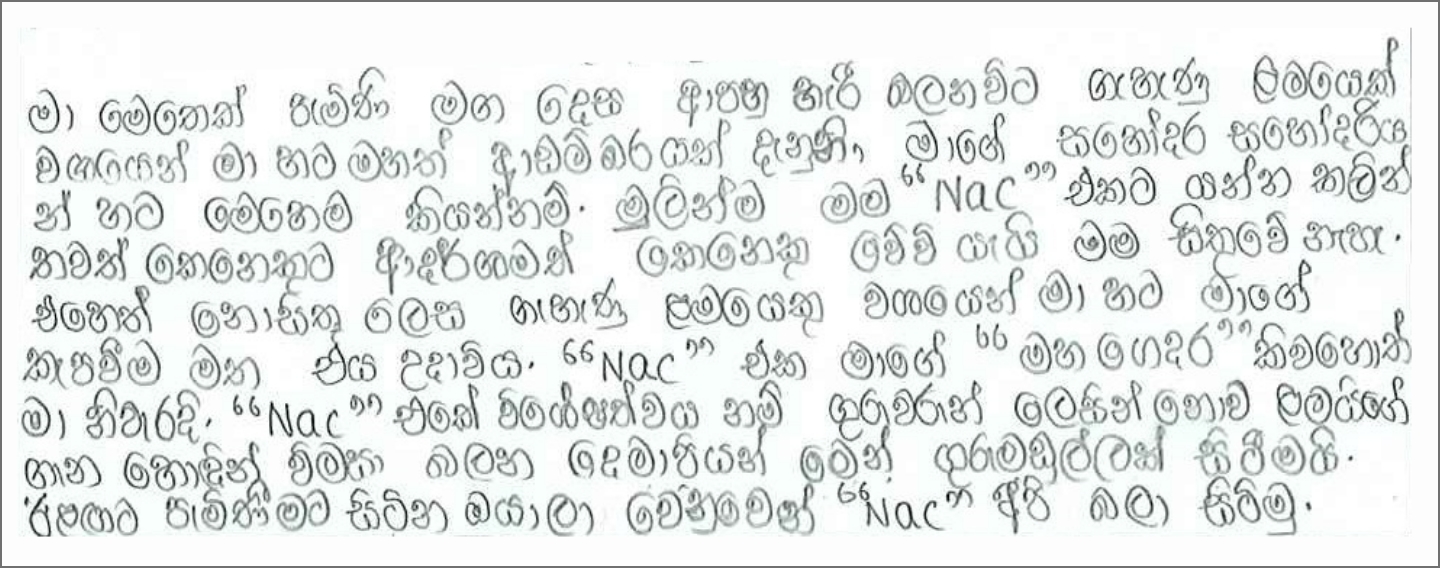 මා මෙතෙක් පැමිණි මග දෙස ආපහු හැරී බලනවිට ගැහැණු ළමයෙක්
වශයෙන් මා හට මහත් ආඩම්බරයක් දැනුනි, මාගේ සහෝදර සහෝදරිය
න් හට මෙහෙම කියන්නම්. මුලින්ම මම "Nac" එකට යන්න කලින්
තවත් කෙනෙකුට ආදර්ශමත් කෙනෙකු වේවි යැයි මම සිතුවේ නැහැ.
එහෙත් නොසිතූ ලෙස ගැහැණු ළමයෙකු වශයෙන් මා හට මාගේ
කැපවීම මත එය උදාවිය. "Nac" එක මාගේ "මහ ගෙදර" කිවහොත්
මා නිවැරදි. "Nac" එකේ විශේෂත්වය නම් ගුරුවරුන් ලෙසින් නොව ළමයිගේ
ගාන හොඳින් විමසා බලන දෙමාපියන් මෙන් ගුරුමඬුල්ලක් සිටීමයි.
පැමිණීමට සිටින ඔයාලා වෙනුවෙන් "Nac" අපි බලා සිටිමු.